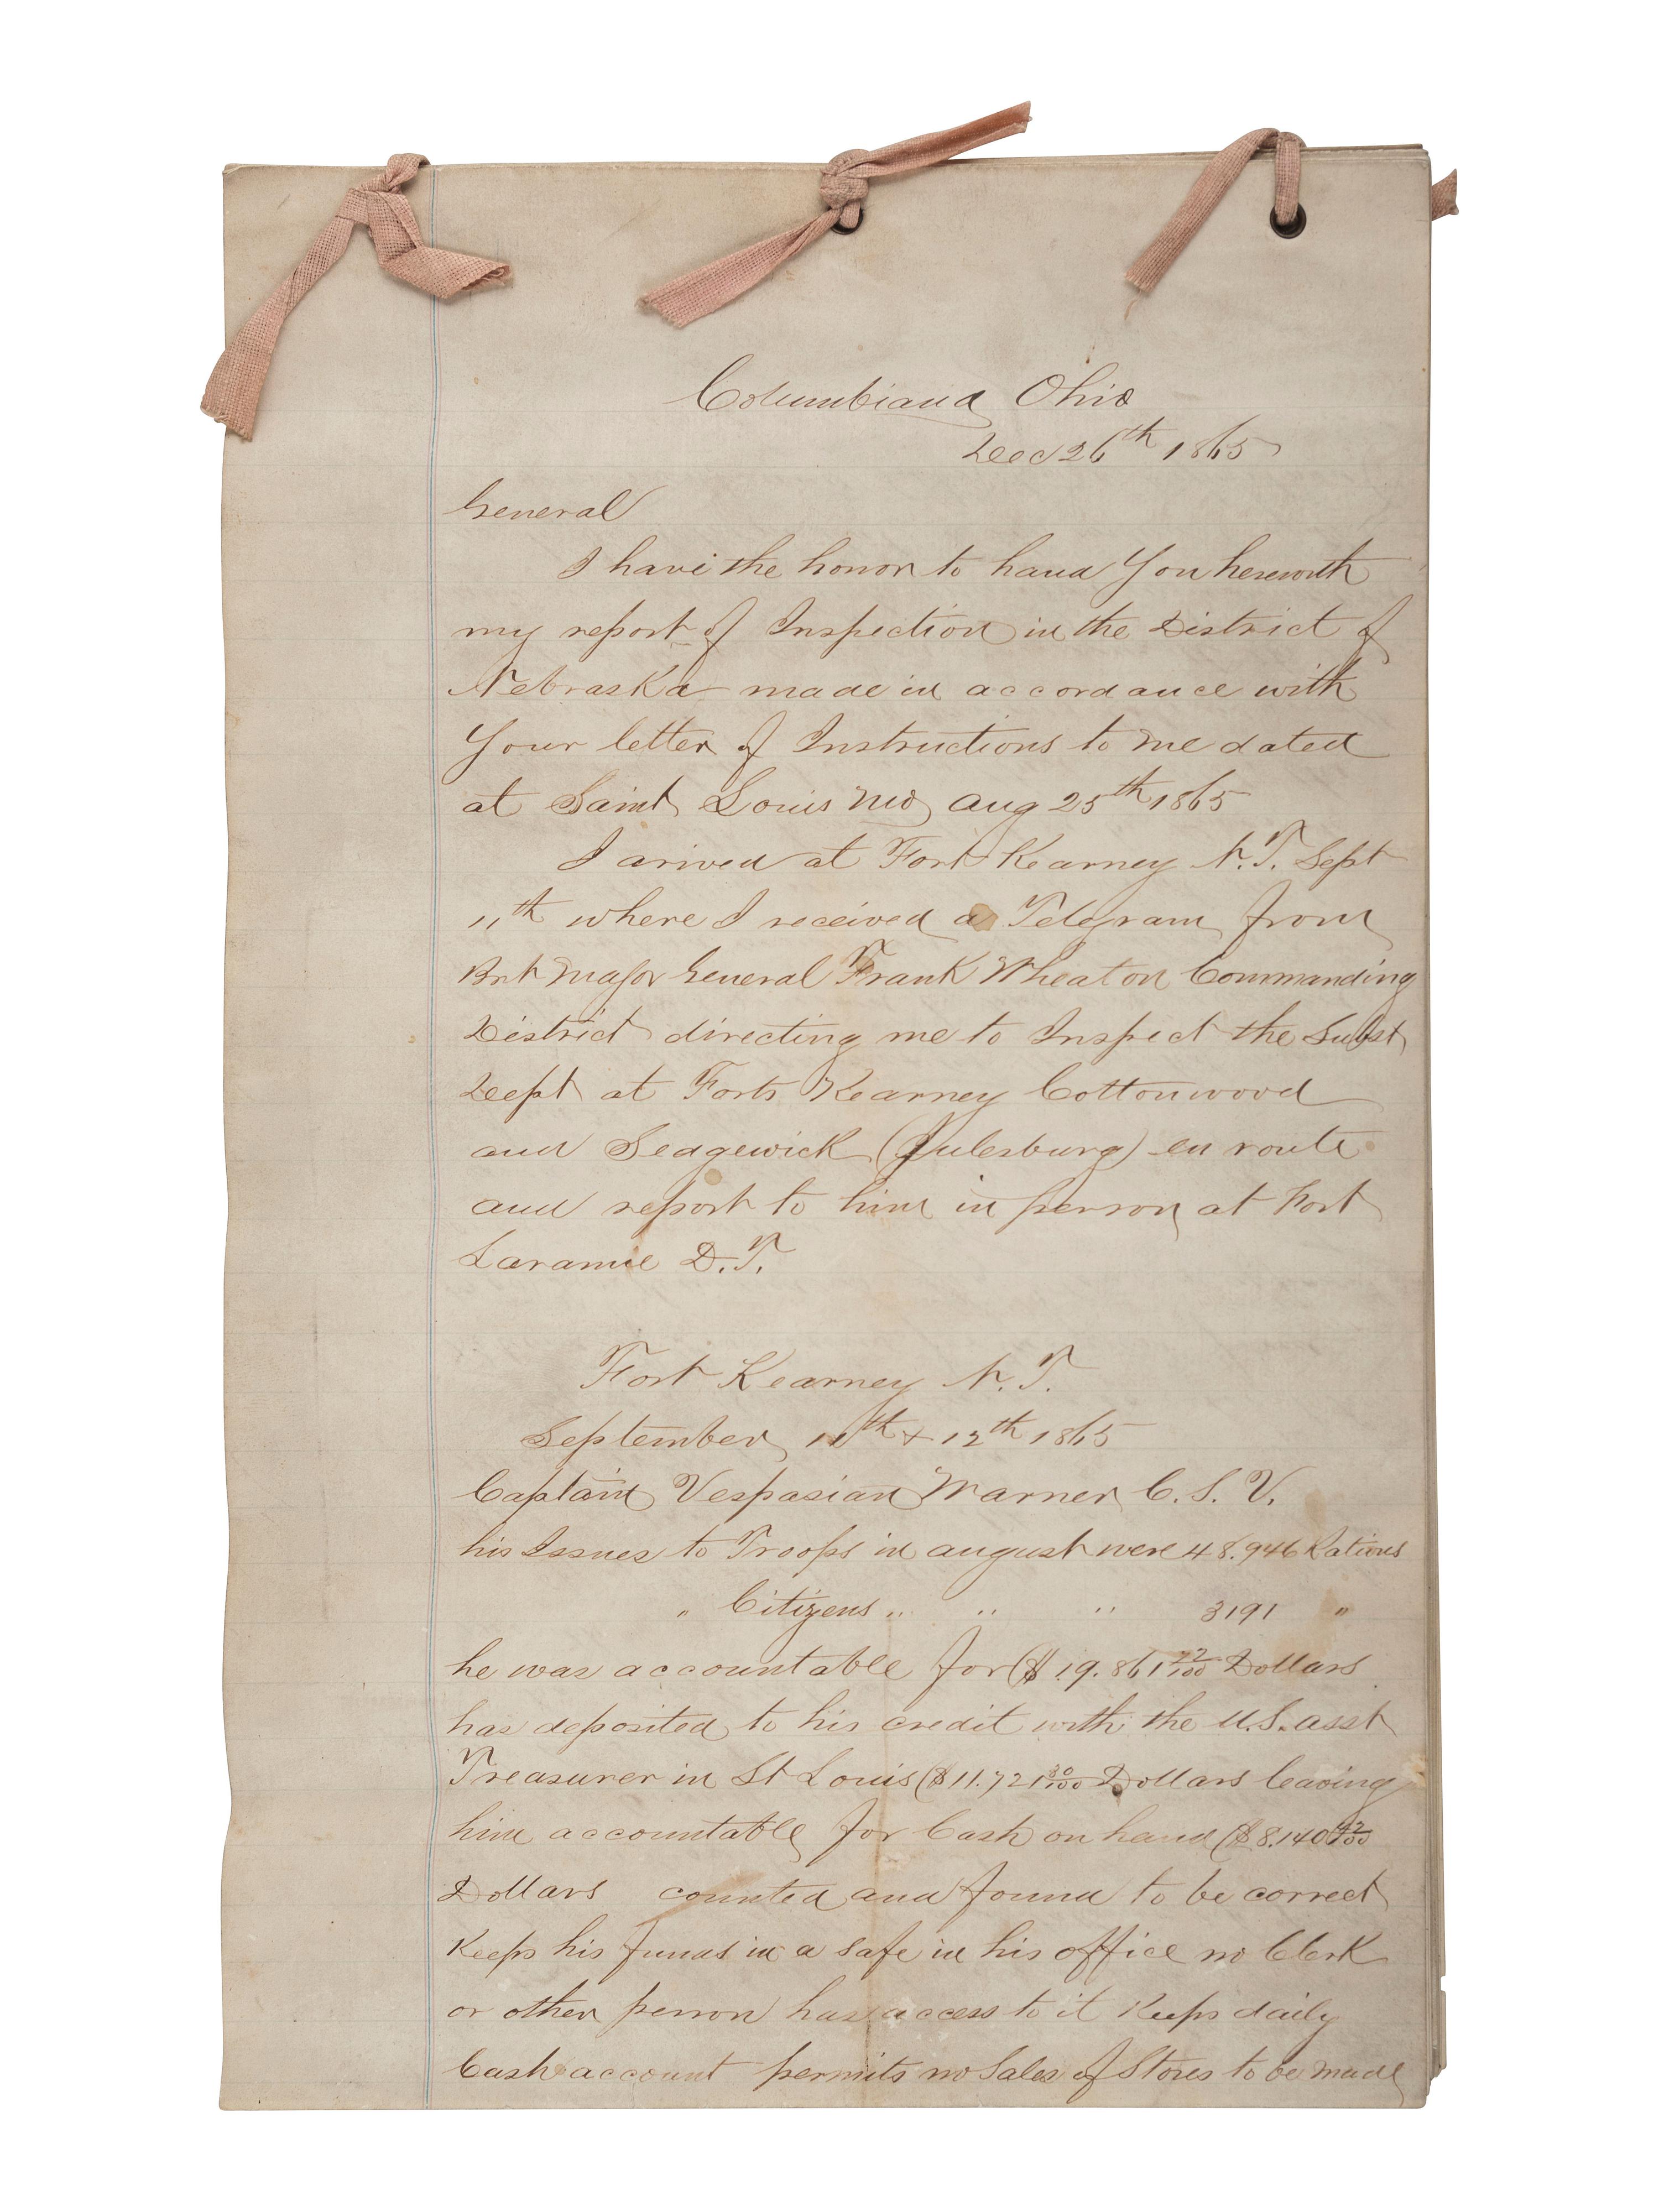 Columbiana Ohio
Dec 26th 1865
General
I have the honor to hand You herewith
my report of Inspection in the District of
Nebraska made in accordance with
Your letter of Instructions to me dated
at Saint Louis Mo Aug 25th 1865
I arived at Fort Kearney N.T. Sept
11th where I received a Telegram from
Bvt Major General Frank Wheaton Commanding
District directing me to Inspect the Subst
Dept at Forts Kearney Cottonwood
and Sedgewick (Julesburg) en route
and report to him in person at Fort
Laramie D.T.
Fort Kearney N.T.
September 11th & 12th 1865
Captain Vespasian Warner C.S.V.
his Issues to Troops in august were 48.946 Rations
" Citizens " " " 3191 "
he was accountable for ($19.861 22/100 Dollars
has deposited to his credit with the U.S. asst
Treasurer in St Louis ($11.721 30/100 Dollars leaving
him accountable for Cash on hand ($8.140 42/100
Dollars counted and found to be correct
Keeps his funds in a safe in his office no Clerk
or other person has access to it Keeps daily
Cash account permits no Sales of Stores to be made